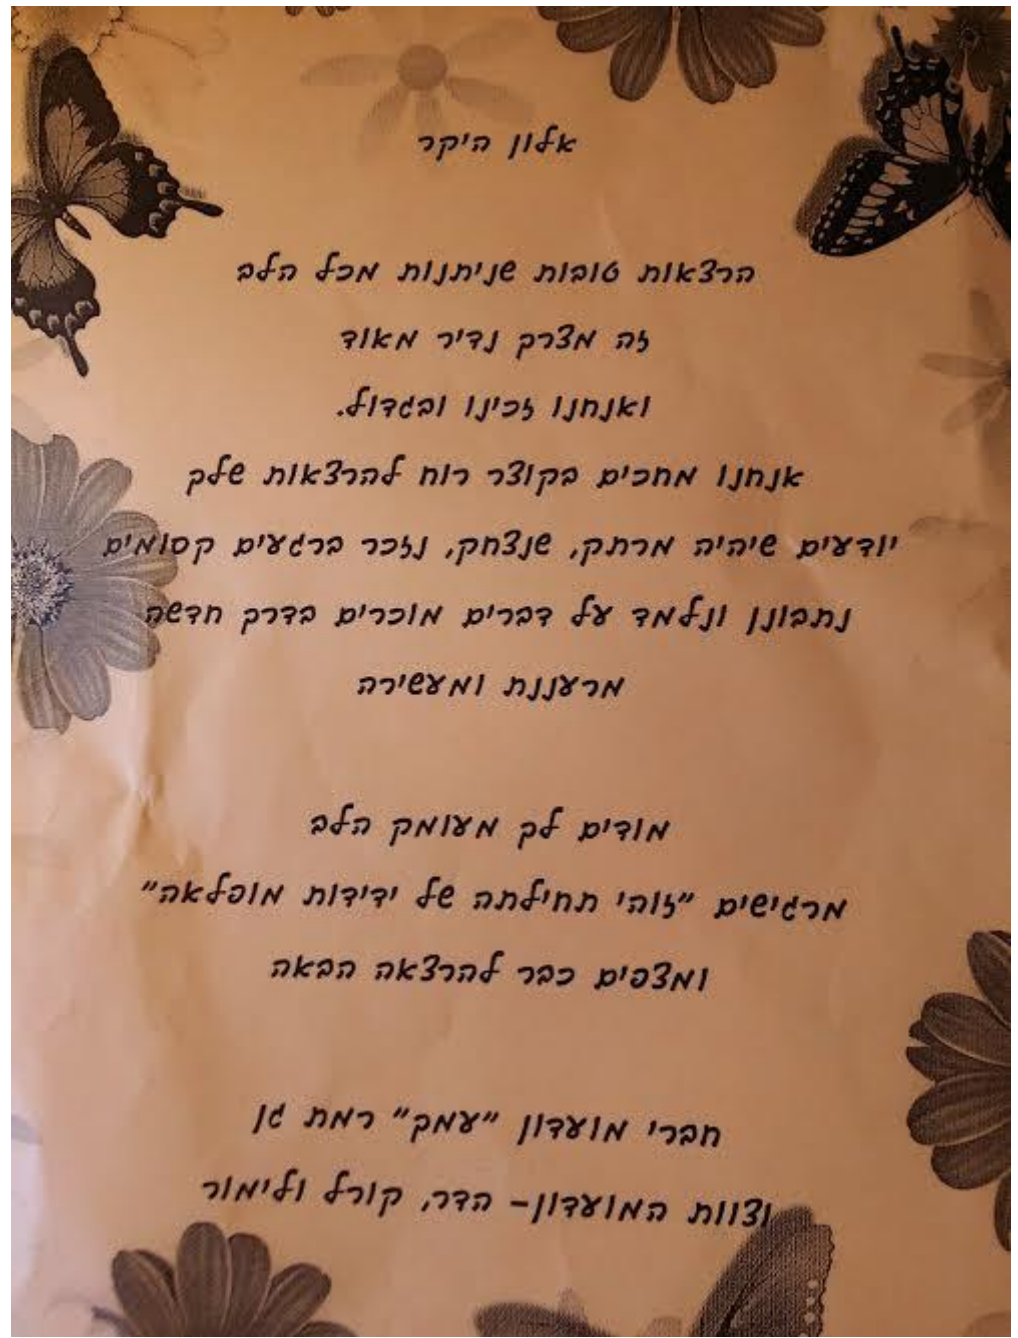 אלון היקר
הרצאות טובות שניתנות מכל הלב
זה מצרך נדיר מאוד
ואנחנו זכינו ובגדול.
אנחנו מחכים בקוצר רוח להרצאות שלך
יודעים שיהיה מרתק, שנצחק, נזכר ברגעים קסומים
נתבונן ונלמד על דברים מוכרים בדרך חדשה
מרעננת ומעשירה
מודים לך מעומק הלב
מרגישים "זוהי תחילתה של ידידות מופלאה"
ומצפים כבר להרצאה הבאה
חברי מועדון "עמך" רמת גן
וצוות המועדון- הדר, קורל ולימור